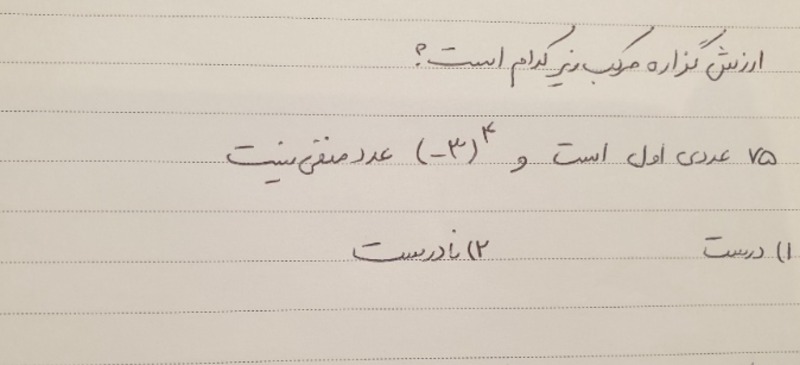 ارزش گزاره مرکب زیر کدام است؟
۷۵ عددی اول است و (-۳)^۴ عدد منفی نیست
۱) درست ۲) نادرست